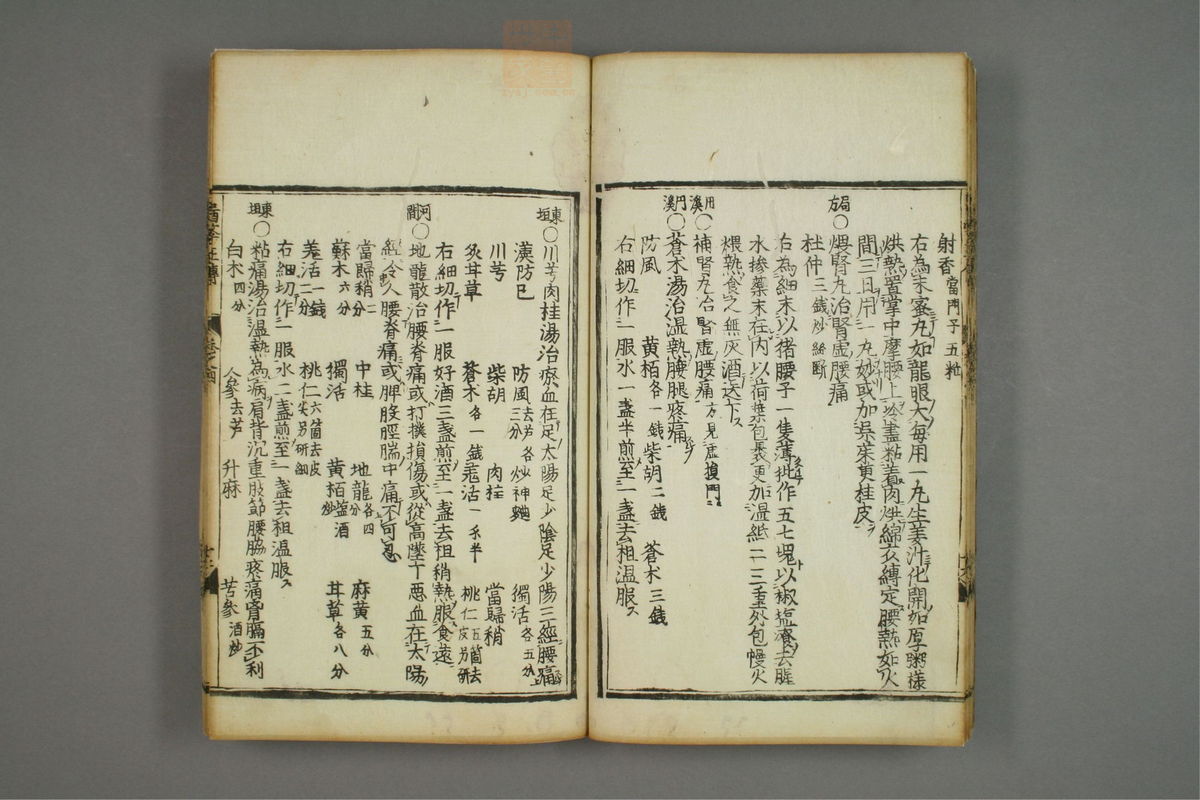 射香當門子五粒
右為末蜜丸如龍眼大每用一丸生姜汁化開如厚粥樣
烘熱置掌中摩腰上冷盡粘着肉烘綿衣縛定腰熱如火
間三日用一丸妙或加吳茱萸桂皮
局方○煨腎丸治腎虛腰痛
杜仲三錢炒絲斷
右為細末以猪腰子一隻薄批作五七塊以椒塩淹去腥
水摻藥末在內以荷葉包裹更加溫紙二三重外包慢火
煨熟食之無灰酒送下
用溪○補腎丸治腎虛腰痛方見虛損門
門溪○蒼朮湯治濕熱腰腿疼痛
防風 黃栢各一錢 柴胡二錢 蒼朮三錢
右細切作一服水一盞半煎至一盞去粗溫服
東垣○川芎肉桂湯治瘀血在足太陽足少陰足少陽三經腰痛
漢防已 防風去芦各三分 炒神麯 獨活各五分
川芎 柴胡 肉桂 當歸稍
炙耳草 蒼朮各一錢 羌活一戔半 桃仁五箇去皮另研
右細切作一服好酒三盞煎至一盞去粗稍熱服食遠
河間○地龍散治腰脊痛或打撲損傷或從高墜下惡血在太陽
經令人腰脊痛或脾股脛腨中痛不可忍
當歸稍二分 中桂 地龍各四分 麻黃五分
蘇木六分 獨活 黃栢塩酒炒 耳草各八分
羗活一錢二分 桃仁六箇去皮尖另研細
右細切作一服水二盞煎至一盞去粗溫服
東垣○粘痛湯治溫熱為病肩背沉重肢節腰脇疼痛胷膈不利
白朮四分 人參去芦 升麻 苦參酒炒